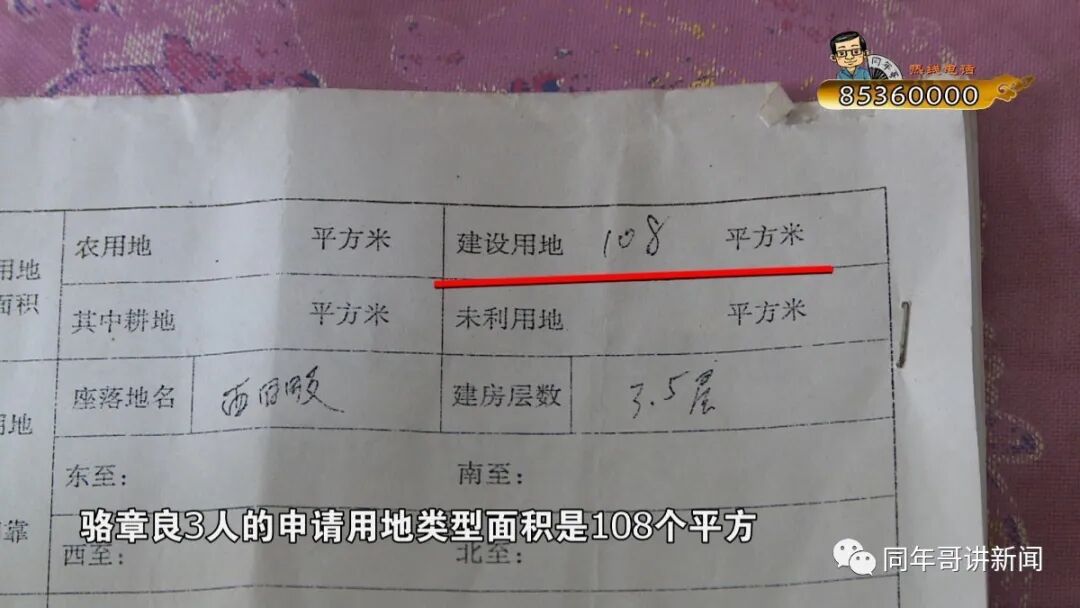 同年哥
热线电话
85360000
农用地 平方米 建设用地 108 平方米
用地
面积
其中耕地 平方米 未利用地 平方米
座落地名 建房层数 3.5层
用地
东至: 南至:
靠
骆章良3人的申请用地类型面积是108个平方
西至: 北至:
同年哥讲新闻